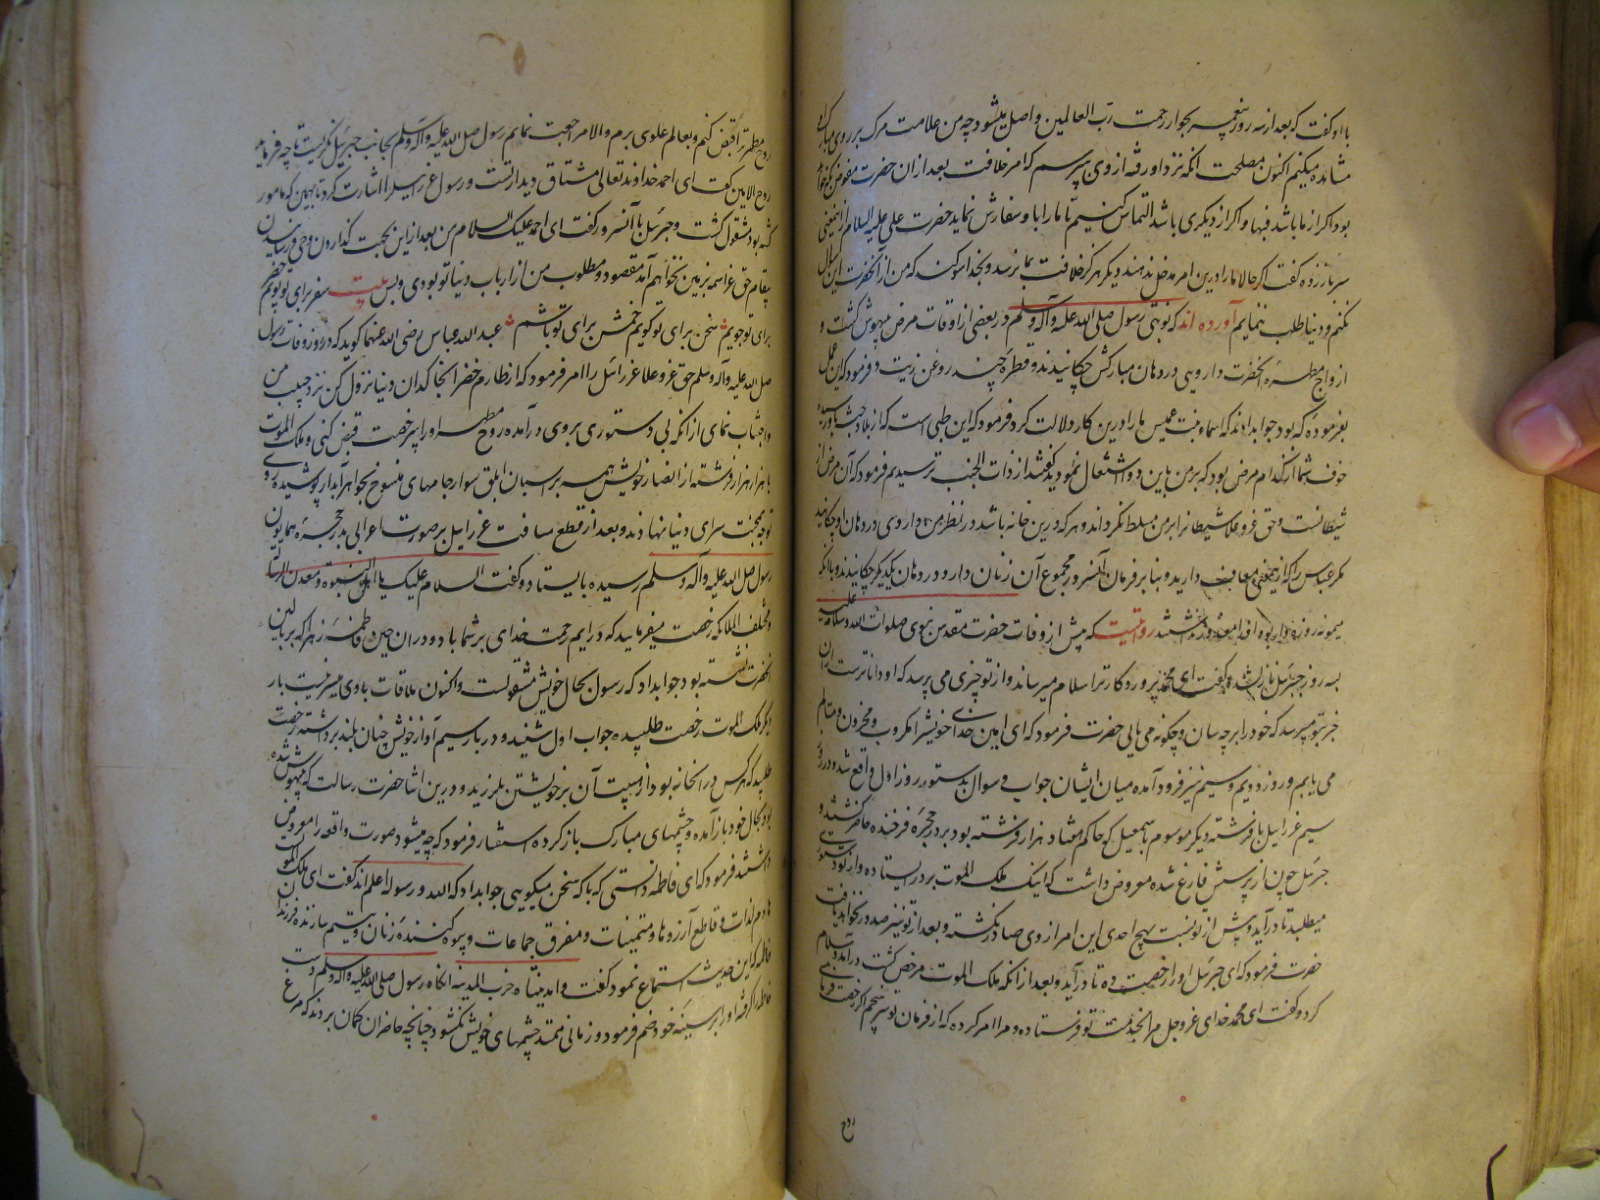 با او گفت که بعد از سه روز پیغمبر بجوار رحمت رب العالمین واصل میشود چه من علامت مرک بر روی
مشاهده میکنم اکنون مصلحت انکه نزد او رفته از وی پرسم که امر خلافت بعد از ان حضرت مفوض
بود اکر از ما باشد فبها و اکر از دیکری باشد التماس کنیم تا ما را باو سفارش نماید حضرت علی علیه السلام از
سر باز زده گفت اکر حالا ما را درین امر مدخل ندهند دیکر هرکز خلافت بما نرسد و بخدا سوکند که من از آنحضرت این سوال
نکنم و دنیا طلب ننمایم آورده اند که نوبتی رسول صلی الله علیه وآله وسلم در بعضی از اوقات مرض بیهوش کشت و
ازواج مطهره آنحضرت دارویی در دهان مبارکش چکانیدند و قطرهٔ چند روغن زیت و فرمود که این عمل
بفرموده که بود جواب دادند که اسماء بنت عمیس ما را درین کار دلالت کرد فرمود که این طبی است که از بلاد حبشه
خوف شما از کدام مرض بود که بر من باین دوا اشتغال نمودید گفتند از ذات الجنب ترسیدیم فرمود که آن مرض از
شیطانست و حق عز و علا شیطانرا بر من مسلط نکرداند و هرکه درین خانه باشد در نظر من داروی در دهان او چکانید
مکر عباس را که از یمعنی معاف دارید و بنا بر فرمان آنسرور مجموع آن زنان دارو در دهان یکدیکر چکانیدند
میمونه روزه دار بود روایتست که پیش از وفات حضرت مقدس نبوی صلوات الله وسلامه علیه
بسه روز جبرئیل نازل شده گفت ای محمد پروردکار ترا سلام میرساند و از تو چیزی می پرسد که او داناترست از ان
خبر بتو میپرسد که خود را بر چه سان و چکونه می یابی حضرت فرمود که ای امین خدای خویشرا مکروب و محزون
می یابم و روز دویم و سیم نیز فرود آمده میان ایشان جواب و سوال بدستور روز اول واقع شد و در روز
سیم عزرایل با فرشته دیکر موسوم باسمعیل که حاکم هفتاد هزار فرشته بود بر در حجرهٔ فرخنده حاضر کشتند و
جبرئیل چون از پرسش فارغ شده معروض داشت که اینک ملک الموت بر در ایستاده و از تو دستوری
میطلبد تا درآید و پیش از تو نسبت بهیچ احدی این امر از وی صادر نکشته و بعد از تو نیز صدور نخواهد یافت
حضرت فرمود که ای جبرئیل او را رخصت ده تا درآید و بعد از انکه ملک الموت مرخص کشت درآمد و سلام
کرد و گفت ای محمد خدای عز و جل مرا بخدمت تو فرستاده و مرا امر کرده که از فرمان تو سر نپیچم اکر رخصت فرمایی
روح
روح مطهرت را قبض کنم و بعالم علوی برم والا مراجعت نمایم رسول صلی الله علیه وآله وسلم بجانب جبرئیل نکریست تا چه فرماید
روح الامین گفت ای احمد خداوند تعالی مشتاق دیدار تست و رسول عزرایل را اشارت کرد تا بهمین که مامور
کشته بود مشغول کشت و جبرئیل با آنسرور گفت ای احمد علیک السلام من بعد از این بجهت کذاردن وحی و رسانیدن
پیغام حق عز اسمه بزمین نخواهم آمد مقصود و مطلوب من از ارباب دنیا تو بودی و بس بیت سفر برای تو پویم
برای تو جویم سخن برای تو کویم خمش برای تو باشم عبد الله عباس رضی الله عنهما کوید که در روز وفات رسول
صلی الله علیه وآله وسلم حق عز و علا عزرائیل را امر فرمود که از طارم خضر انجا کدان دنیا نزول کن نزد حبیب من
و اجتناب نمای از انکه بی دستوری بروی درآمده روح مطهر او را بی رخصت قبض کنی و ملک الموت
با هزار هزار فرشته از انصار خویش همه بر اسبان ابلق سوار جامهای منسوج بجواهر آبدار پوشیده روی
توجه بمحنت سرای دنیا نهادند و بعد از قطع مسافت عزرایل بر صورت اعرابی بدر حجرهٔ همایون
رسول صلی الله علیه وآله وسلم رسیده بایستاد و گفت السلام علیک یا اهل بیت النبوة و معدن الرسالة
و مختلف الملائکه رخصت میفرمایید که درایم رحمت خدای بر شما باد و در ان حین فاطمه زهرا که بر بالین
آنحضرت نشسته بود جواب داد که رسول بحال خویش مشغولست و اکنون ملاقات با وی میسر نیست بار
دیکر ملک الموت رخصت طلبیده جواب اول شنید و در بار سیم آواز خویش چنان بلند برداشته رخصت
طلبید که هر کس در انخانه بود از هیبت آن بر خویشتن بلرزید و درین اثنا حضرت رسالت که بیهوش شده
بود بحال خود باز آمده و چشمهای مبارک باز کرده استفسار فرمود که چه میشود صورت واقعه را معروض
داشتند فرمود که ای فاطمه دانستی که با که سخن میکویی جواب داد که الله و رسوله اعلم گفت ای ملک الموت
هادم لذات و قاطع آرزوها و متمنیات و مفرق جماعات و بیوه کنندهٔ زنان و یتیم سازنده فرزندان
فاطمه که این حدیث استماع نمود گفت وا مدینتاه خرب المدینه انکاه رسول صلی الله علیه وآله وسلم دست
فاطمه را کرفته او را بر سینه خود ضم فرمود و زمانی ممتد چشمهای خویش نکشود چنانچه حاضران کمان بردند که مرغ